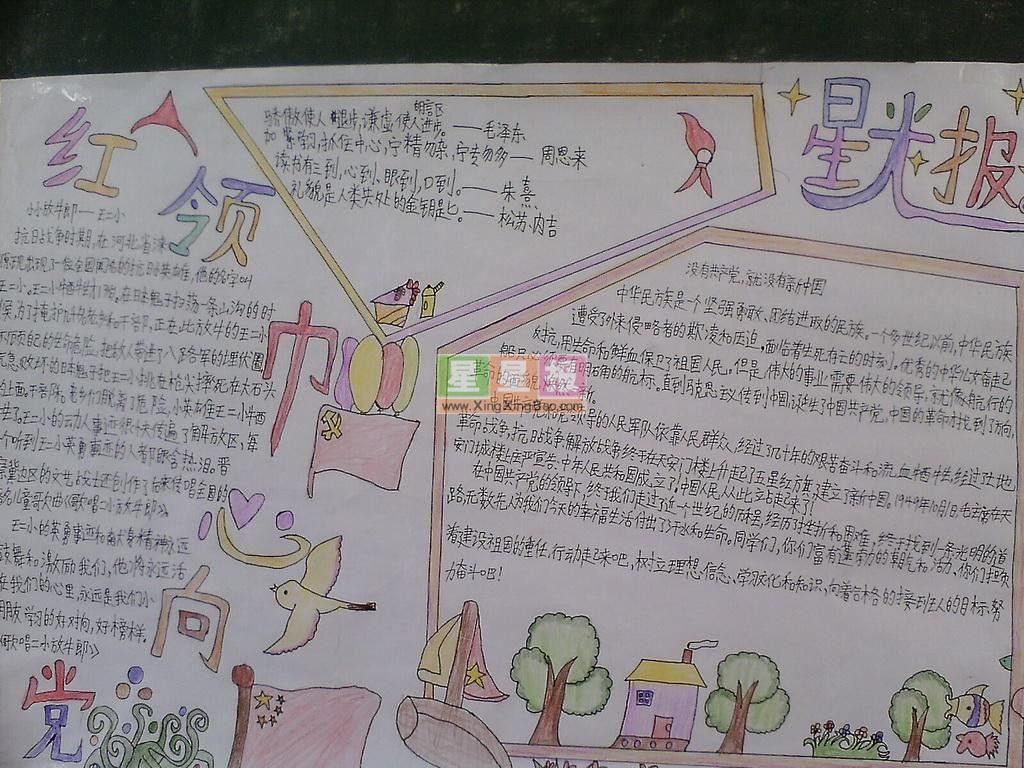 红
领
巾
心
向
党
星光报
名言区
骄傲使人退步,谦虚使人进步。——毛泽东
加紧学习,抓住中心,宁精勿杂,宁专勿多——周恩来
读书有三到,心到、眼到,口到。——朱熹
礼貌是人类共处的金钥匙。——松苏内吉
小放牛郎——王二小
抗日战争时期,在河北省涞
王二小。王二小牺牲时11岁,在日本鬼子扫荡一条山沟的时
候,为了掩护几千名老乡和干部,正在此放牛的王二小
不顾自己的生命危险,把敌人带进了八路军的埋伏圈
气急败坏的日本鬼子把王二小挑在枪尖摔死在大石头
的上面。干部和老乡们脱离了危险,小英雄王二小牺
牲了王二小的动人事迹很快传遍了解放区,每
个听到王二小英勇事迹的人都眼含热泪。晋
察冀边区的文艺战士还创作了后来传唱全国的
儿童歌曲《歌唱二小放牛郎》。
王二小的英勇事迹和献身精神永远
鼓舞和激励我们,他将永远活
在我们的心里,永远是我们小
朋友学习的好对向,好榜样。
《歌唱二小放牛郎》
没有共产党,就没有新中国
中华民族是一个坚强勇敢、团结进取的民族。一个多世纪以前,中华民族
遭受了外来侵略者的欺凌和压迫,面临着生死存亡的时刻。优秀的中华儿女奋起
反抗,用生命和鲜血保卫了祖国人民。但是,伟大的事业需要伟大的领导,就像航行的
明确的航标。直到马克思主义传到中国,诞生了中国共产党,中国的革命才找到了方向,
领导的人民军队依靠人民群众,经过几十年的艰苦奋斗和流血牺牲,经过土地
革命战争,抗日战争解放战争终于在天安门楼上升起了五星红旗,建立了新中国。1949年10月1日毛主席在天
安门城楼上庄严宣告:中华人民共和国成立了,中国人民从此站起来了!
在中国共产党的领导下,终于我们走过了近一个世纪的历程,经历了挫折和困难,终于找到一条光明的道
路无数先人为我们今天的幸福生活付出了汗水和生命。同学们,你们富有蓬勃的朝气和活力,你们担负
着建设祖国的重任,行动起来吧,树立理想、信念,学好文化和知识,向着合格的接班人的目标,努
力奋斗吧!
星星报
www.XingXingBao.com